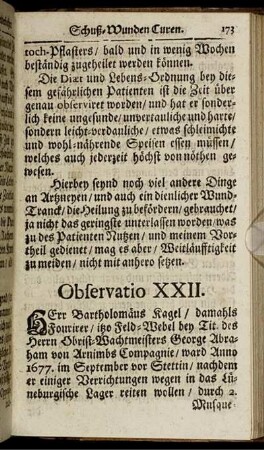 Schuß-Wunden Curen. 173
toch-Pflasters / bald und in wenig Wochen
beständig zugeheilet werden können.
Die Diæt und Lebens-Ordnung bey die-
sem gefährlichen Patienten ist die Zeit über
genau observiret worden / und hat er sonder-
lich keine ungesunde / unvertauliche und harte /
sondern leicht-verdauliche / etwas schleimichte
und wohl-nährende Speisen essen müssen /
welches auch jederzeit höchst von nöthen ge-
wesen.
Hierbey seynd noch viel andere Dinge
an Artzneyen / und auch ein dienlicher Wund-
Tranck / die Heilung zu befördern / gebrauchet /
ja nicht das geringste unterlassen worden / was
zu des Patienten Nutzen / und meinem Vor-
theil gedienet / mag es aber / Weitläufftigkeit
zu meiden / nicht mit anhero setzen.
Observatio XXII.
HErr Bartholomäus Kagel / damahls
Fourirer / itzo Feld-Webel bey Tit. des
Herrn Obrist-Wachtmeisters George Abra-
ham von Arnimbs Compagnie / ward Anno
1677. im September vor Stettin / nachdem
er einiger Verrichtungen wegen in das Lü-
neburgische Lager reiten wollen / durch 2.
Musque-